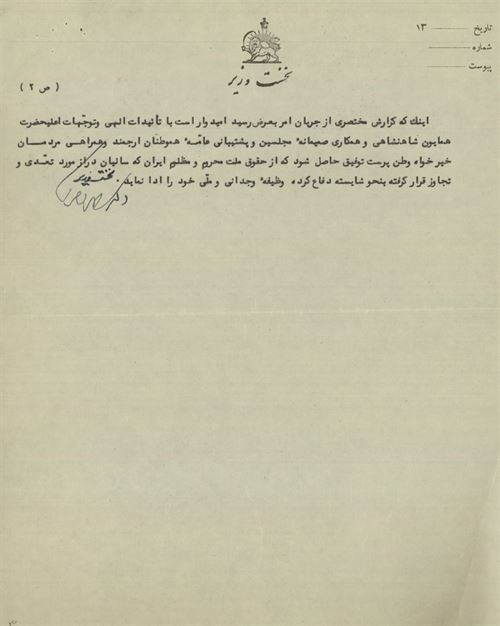 تاریخ ۱۳
شماره
پیوست
نخست وزیر
( ص ۲ )
اینك كه گزارش مختصری از جریان امر بعرض رسید امیدوار است با تأئیدات الهی و توجّهات اعلیحضرت
همایون شاهنشاهی و همکاری صمیمانهٔ مجلسین و پشتیبانی عامّهٔ هموطنان ارجمند وهمراهی مردمان
خیرخواه وطن پرست توفیق حاصل شود كه از حقوق ملت محروم و مظلوم ایران كه سالیان دراز مورد تعدّی و
تجاوز قرار گرفته بنحو شایسته دفاع كرده وظیفهٔ وجدانی و ملّی خود را ادا نماید.
نخست وزیر
دكتر